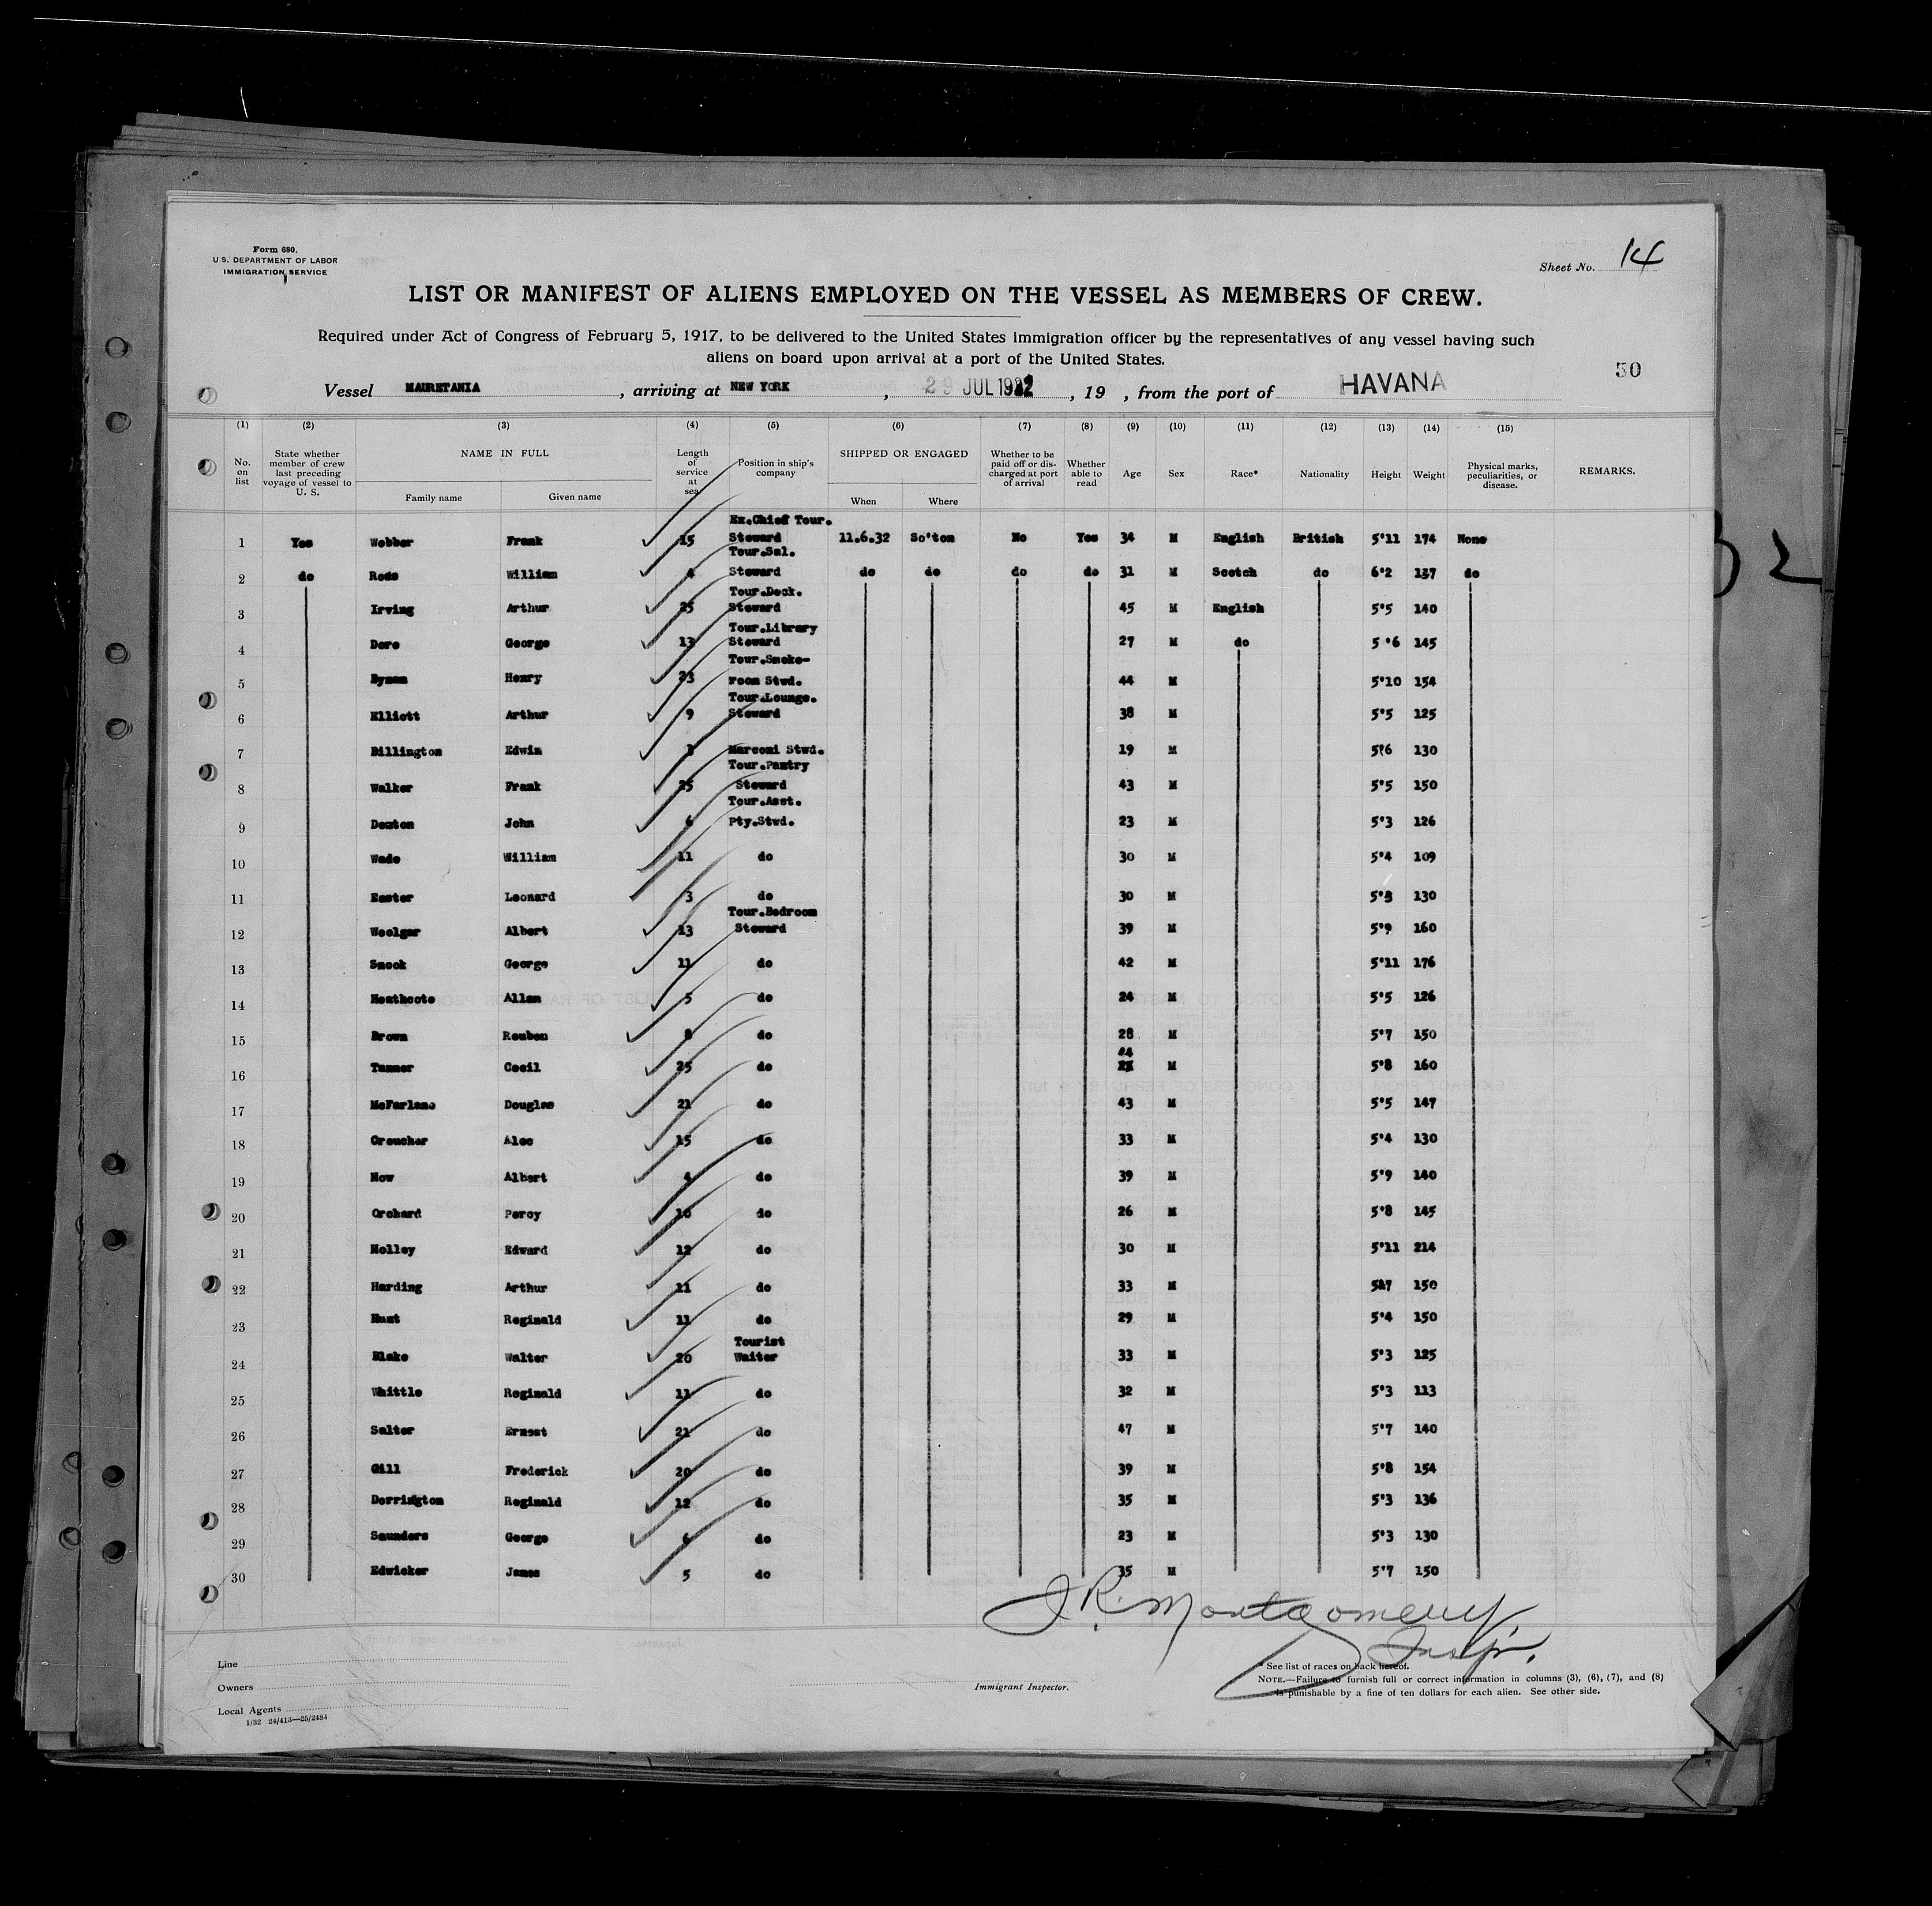 Form 680.
U. S. DEPARTMENT OF LABOR
IMMIGRATION SERVICE
Sheet No. 14
LIST OR MANIFEST OF ALIENS EMPLOYED ON THE VESSEL AS MEMBERS OF CREW.
Required under Act of Congress of February 5, 1917, to be delivered to the United States immigration officer by the representatives of any vessel having such
aliens on board upon arrival at a port of the United States.
50
Vessel MAURETANIA , arriving at NEW YORK , 29 JUL 1932 , 19 , from the port of HAVANA
(1) (2) (3) (4) (5) (6) (7) (8) (9) (10) (11) (12) (13) (14) (15)
No. on list State whether member of crew last preceding voyage of vessel to U. S. NAME IN FULL Family name Given name Length of service at sea Position in ship's company SHIPPED OR ENGAGED When Where Whether to be paid off or discharged at port of arrival Whether able to read Age Sex Race* Nationality Height Weight Physical marks, peculiarities, or disease. REMARKS.
1 Yes Webber Frank 15 Ex.Chief Tour. Steward 11.6.32 So'ton No Yes 34 M English British 5'11 174 None
2 do William 4 Tour.Sal. Steward do do do do 31 M Scotch do 6'2 137 do
3 Irving Arthur 25 Tour.Deck. Steward 45 M English 5'5 140
4 Dore George 13 Tour.Library Steward 27 M do 5'6 145
5 Henry 23 Tour.Smoke- room Stwd. 44 M 5'10 154
6 Elliott Arthur 9 Tour.Lounge. Steward 38 M 5'5 125
7 Billington Edwin 3 Marconi Stwd. 19 M 5'6 130
8 Walker Frank 25 Tour.Pantry Steward 43 M 5'5 150
9 John 6 Tour.Asst. Pty.Stwd. 23 M 5'3 126
10 Wade William 11 do 30 M 5'4 109
11 Easter Leonard 3 do 30 M 130
12 Woolgar Albert 13 Tour.Bedroom Steward 39 M 5'9 160
13 Snook George 11 do 42 M 5'11 176
14 Heathcote Allan 5 do 24 M 5'5 126
15 Brown Reuben 8 do 28 M 5'7 150
16 Tanner Cecil 25 do M 5'8 160
17 McFarlane Douglas 21 do 43 M 5'5 147
18 Croucher Alec 15 do 33 M 5'4 130
19 How Albert 4 do 39 M 5'9 140
20 Orchard Percy 10 do 26 M 5'8 145
21 Holley Edward 12 do 30 M 5'11 214
22 Harding Arthur 11 do 33 M 5'7 150
23 Hunt Reginald 11 do 29 M 5'4 150
24 Blake Walter 20 Tourist Waiter 33 M 5'3 125
25 Whittle Reginald 11 do 32 M 5'3 113
26 Salter Ernest 21 do 47 M 5'7 140
27 Gill Frederick 20 do 39 M 5'8 154
28 Derrington Reginald 12 do 35 M 5'3 136
29 Saunders George 6 do 23 M 5'3 130
30 Edwicker James 5 do 35 M 5'7 150
J.R. Montgomery
Insp'r.
Line
Owners
Local Agents
1/32 24/413—25/2484
Immigrant Inspector.
* See list of races on back hereof.
NOTE.—Failure to furnish full or correct information in columns (3), (6), (7), and (8)
is punishable by a fine of ten dollars for each alien. See other side.